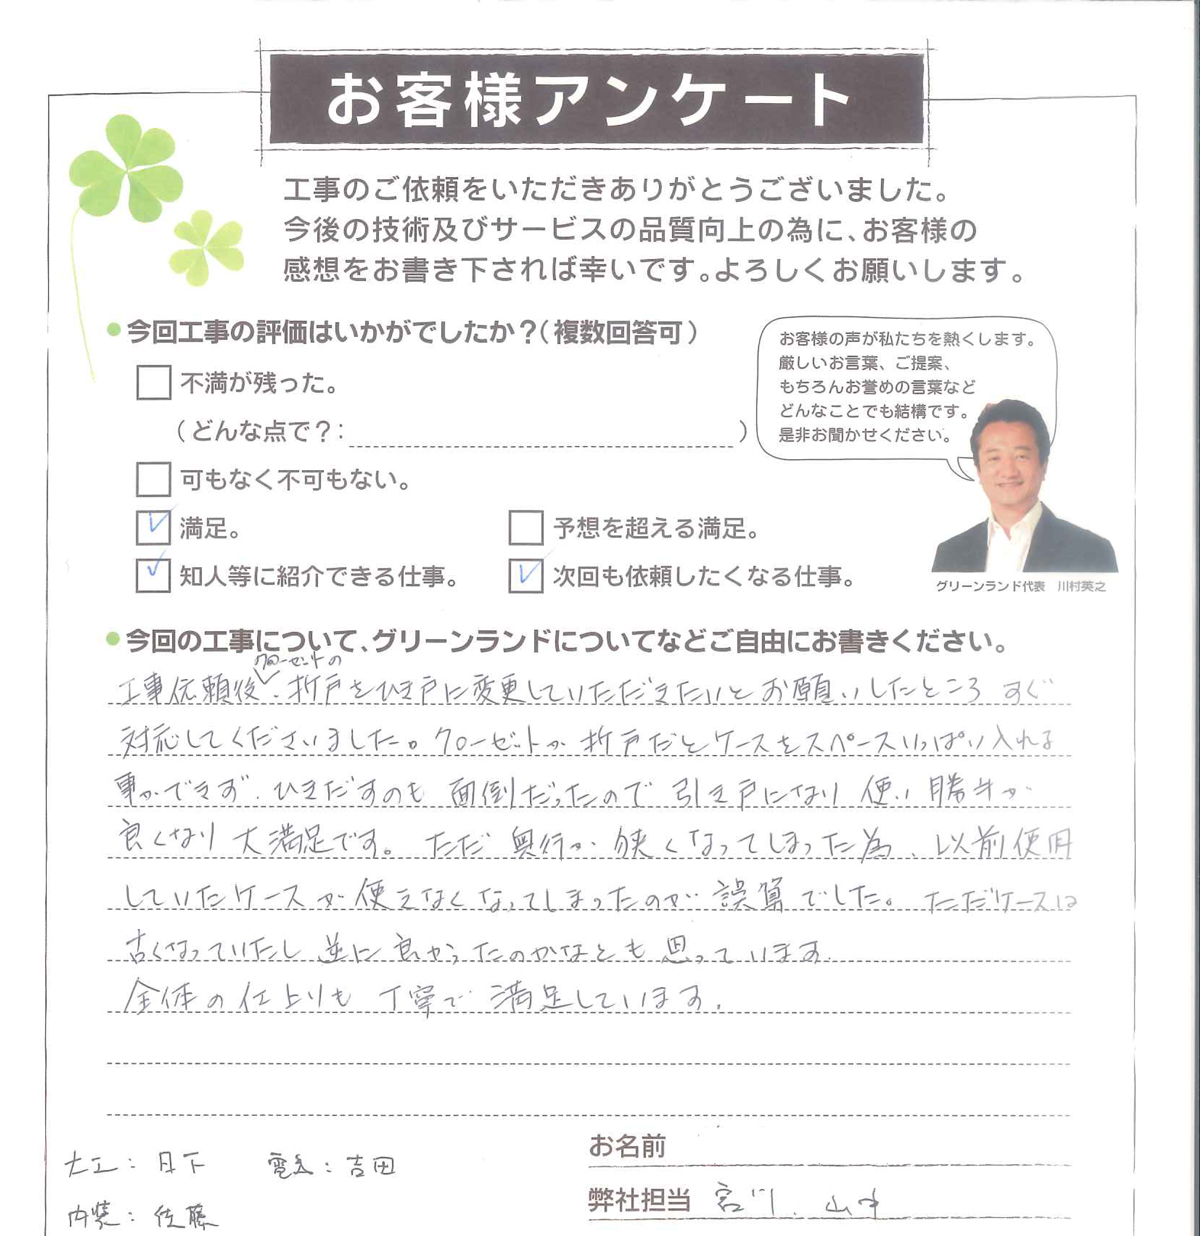 お客様アンケート
工事のご依頼をいただきありがとうございました。
今後の技術及びサービスの品質向上の為に、お客様の
感想をお書き下されば幸いです。よろしくお願いします。
今回工事の評価はいかがでしたか？（複数回答可）
不満が残った。
（どんな点で？：　　　）
可もなく不可もない。
満足。
予想を超える満足。
知人等に紹介できる仕事。
次回も依頼したくなる仕事。
お客様の声が私たちを熱くします。
厳しいお言葉、ご提案、
もちろんお誉めの言葉など
どんなことでも結構です。
是非お聞かせください。
グリーンランド代表　川村英之
今回の工事について、グリーンランドについてなどご自由にお書きください。
クローゼットの
工事依頼後、折戸をひき戸に変更していただきたいとお願いしたところ すぐ
対応してくださいました。クローゼットが折戸だとケースをスペースいっぱい入れる
事ができず、ひきだすのも面倒だったので引き戸になり使い勝手が
良くなり大満足です。ただ奥行が狭くなってしまった為、以前使用
していたケースが使えなくなってしまったのが誤算でした。ただケースは
古くなっていたし逆に良かったのかなとも思っています。
全体の仕上りも丁寧で満足しています。
大工：日下　電気：吉田
内装：佐藤
お名前
弊社担当 宮川、山中